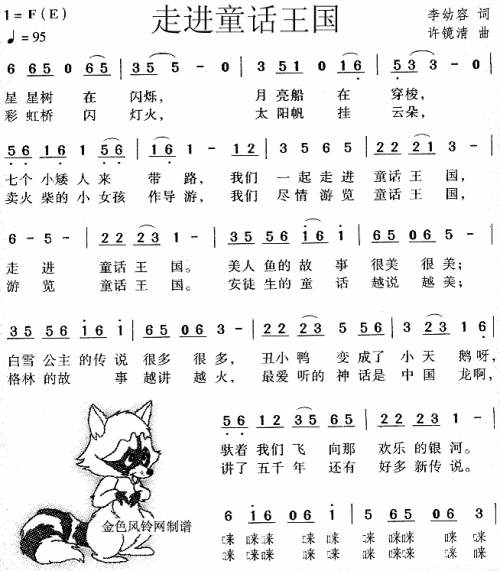 走进童话王国
1=F(E)
♩=95
李幼容 词
许镜清 曲
6 65 0 65 | 35 5 - 0 | 3 51 0 16 | 53 3 - 0 |
星 星树 在 闪烁, 月 亮船 在 穿梭,
彩 虹桥 闪 灯火, 太 阳帆 挂 云朵,
56 16 1 56 | 16 1 - 12 | 3 5 6 5 | 22 21 3 - |
七个 小矮 人 来 带 路, 我们 一 起 走 进 童话 王 国,
卖火 柴的 小 女孩 作导 游, 我们 尽 情 游 览 童话 王 国,
6 - 5 - | 22 23 1 - | 35 56 i6 i | 65 06 5 - |
走 进 童话 王 国。 美人 鱼的 故 事 很美 很 美;
游 览 童话 王 国。 安徒 生的 童 话 越说 越 美;
35 56 i6 i | 65 06 3 - | 22 23 5 56 | 3 23 1 6 |
白雪 公主 的传 说 很多 很 多, 丑小 鸭 变 成了 小 天 鹅 呀,
格林 的故 事 越讲 越 火, 最爱 听的 神 话是 中 国 龙 啊,
56 12 35 65 | 22 23 1 - |
驮着 我们 飞 向那 欢乐 的银 河。
讲了 五千 年 还有 好多 新传 说。
6 i6 06 i | 5 65 06 3 |
咪 咪咪 咪 咪 咪 咪咪 咪 咪
咪 咪咪 咪 咪 咪 咪咪 咪 咪
金色风铃网制谱